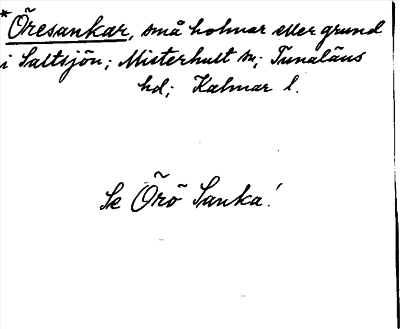 *Öresankar, små holmar eller grund
i Saltsjön; Misterhult sn; Tunaläns
hd; Kalmar l.
Se Örö Sanka!